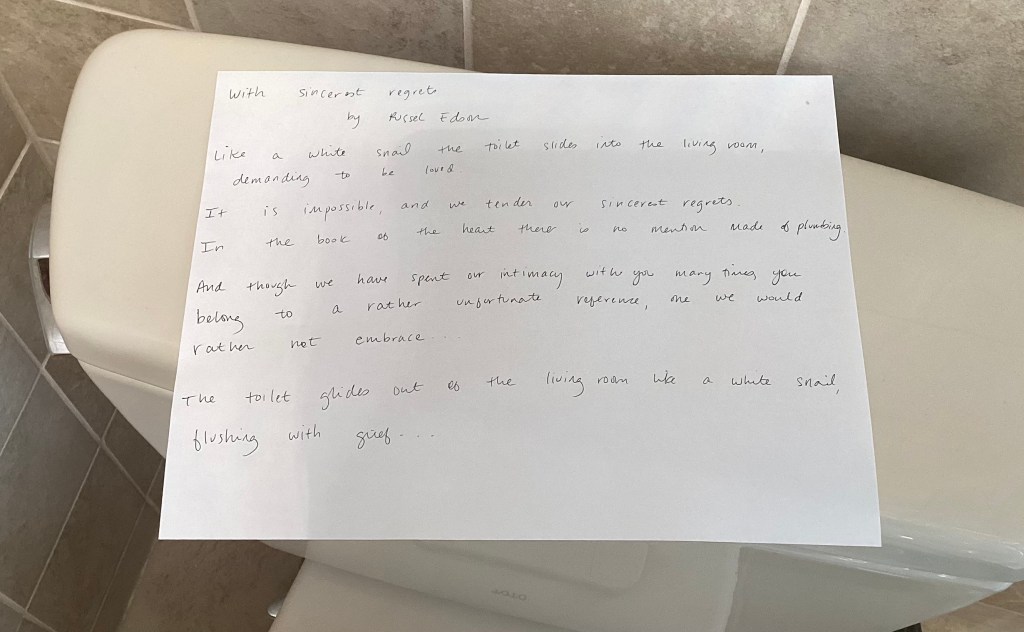 With sincerest regrets
by Russel Edson
Like a white snail the toilet slides into the living room,
demanding to be loved
It is impossible, and we tender our sincerest regrets.
In the book of the heart there is no mention made of plumbing
And though we have spent our intimacy with you many times, you
belong to a rather unfortunate reference, one we would
rather not embrace....
The toilet glides out of the living room like a white snail,
flushing with grief....
TOTO